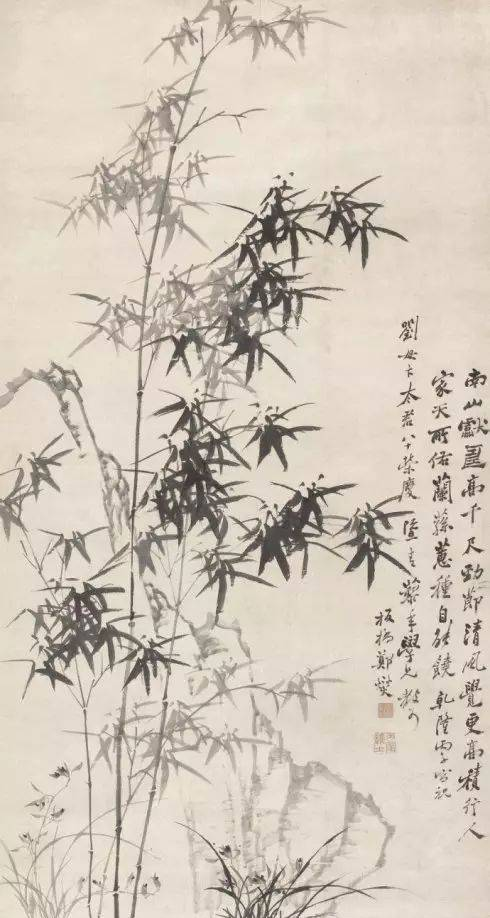 南山獻壽高千尺勁節清風覺更高積行人
家天所佑蘭蓀蕙種自能饒乾隆丙子為祝
劉母卞太君八十榮慶青藜年學兄教可
板橋鄭燮